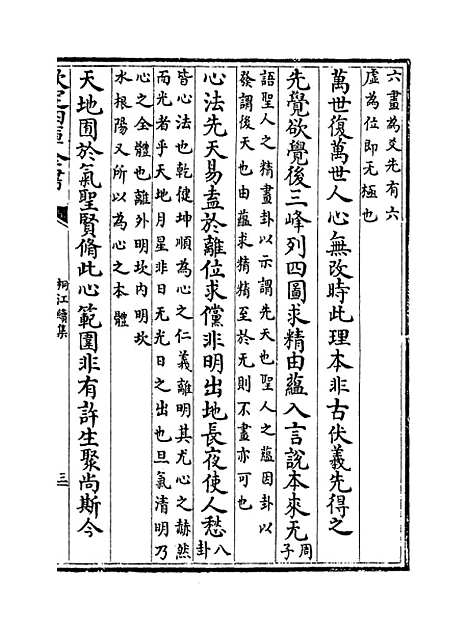 六畫為爻先有六
虛為位即无極也
萬世復萬世人心無改時此理本非古伏羲先得之
先覺欲覺後三峰列四圖求精由蘊入言說本來无周子
語聖人之精畫卦以示謂先天也聖人之蘊因卦以
發謂後天也由蘊求精精至於无則不畫亦可也
心法先天易盍於離位求儻非明出地長夜使人愁八卦
皆心法也乾健坤順為心之仁義離明其尤心之赫然
而光者乎天地月星非日无光日之出也旦氣清明乃
心之全體也離外明坎内明坎
水根陽又所以為心之本體
天地囿於氣聖賢脩此心範圍非有許生聚尚斯今
欽定四庫全書
桐江續集
三